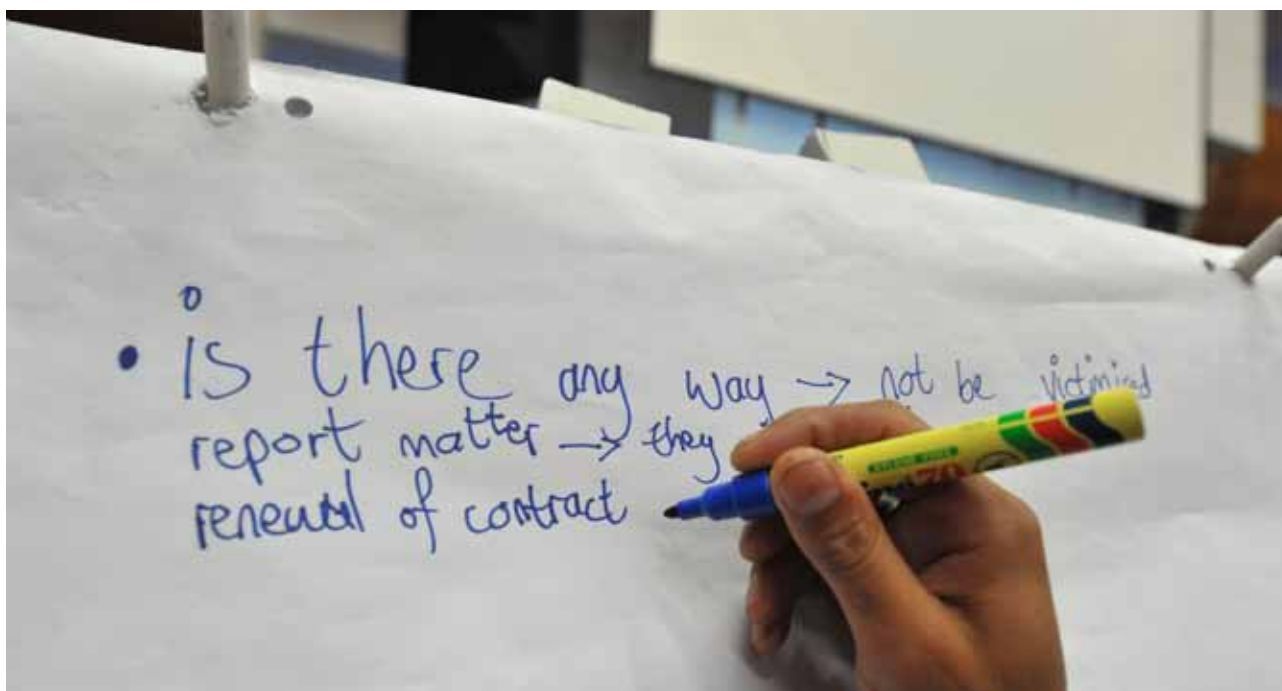 • is there any way → not be victimised
report matter → they
renewal of contract
XYLENE FREE